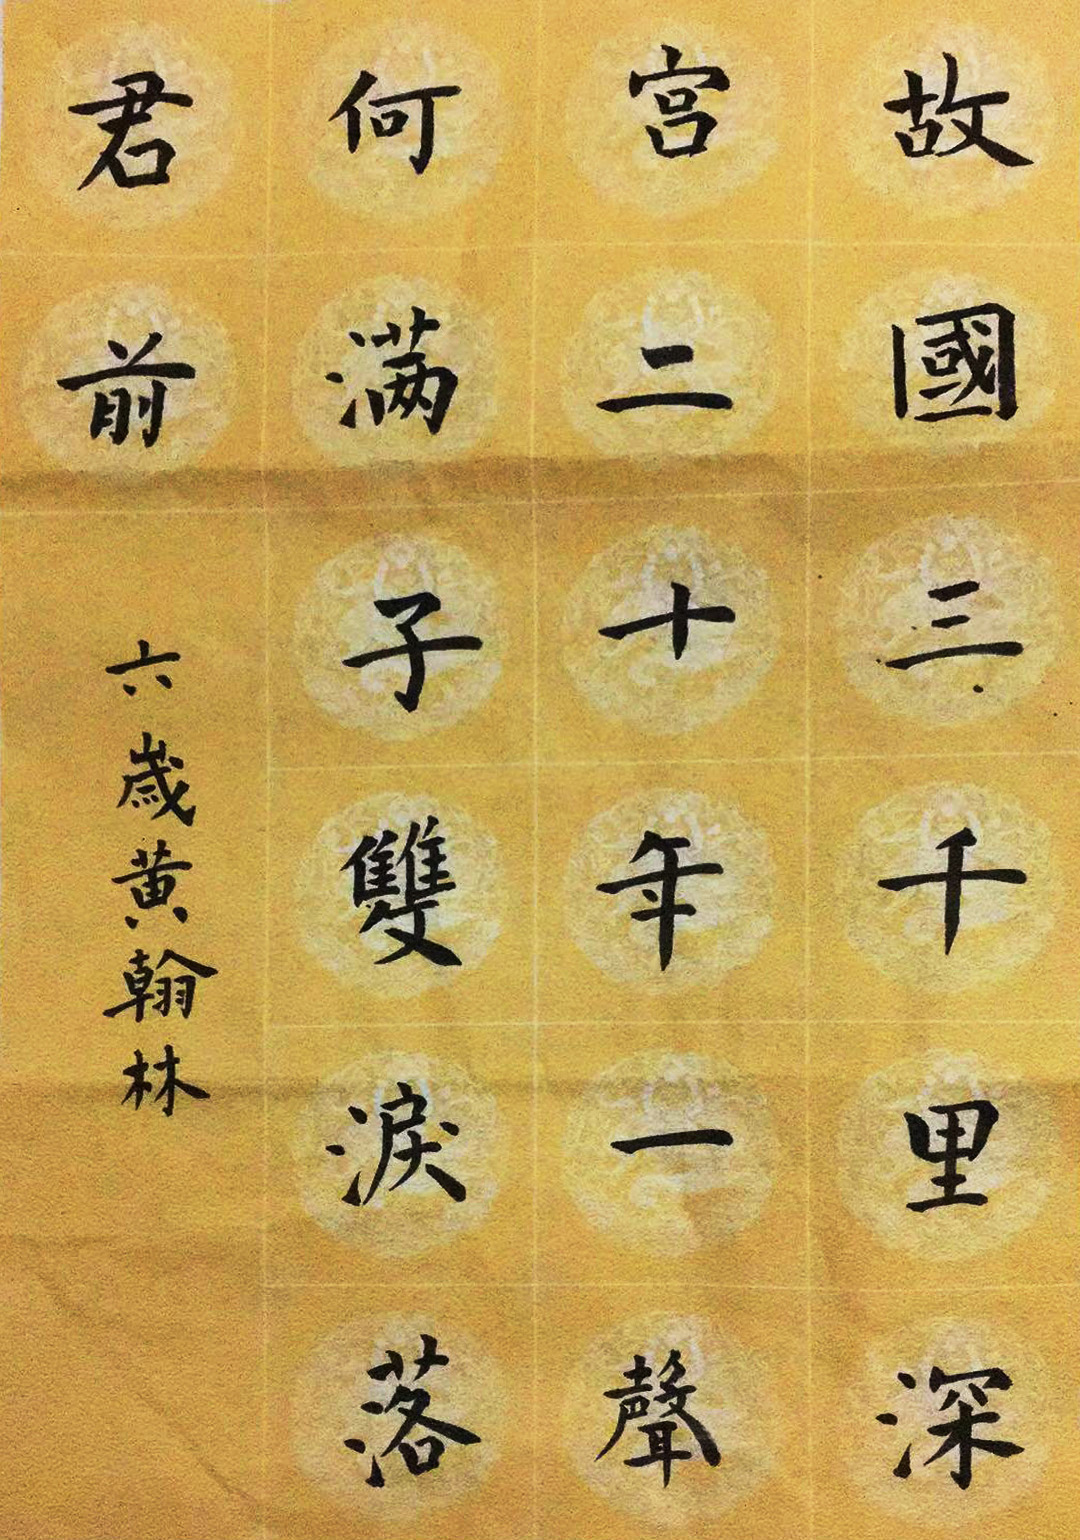 故國三千里深
宮二十年一聲
何滿子雙淚落
君前
六歲黃翰林